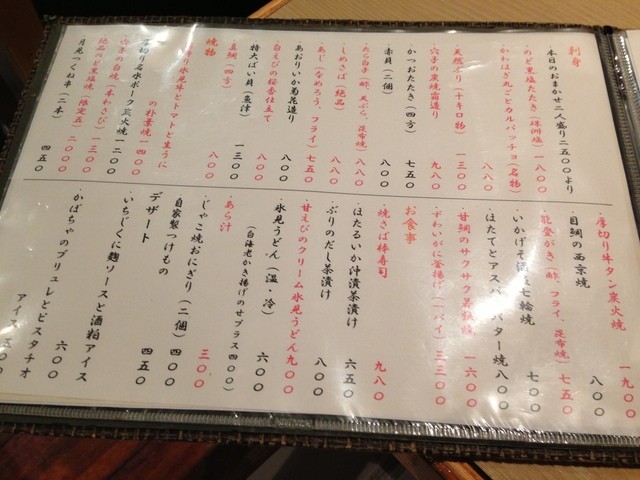 刺身
・本日のおまかせ二人盛り二五〇〇より
・のど黒塩たたき(珠洲塩)一八〇〇
・かわはぎ丸ごとカルパッチョ(名物)一八〇〇
・天然ブリ(十キロ物)一三〇〇
・穴子の炭焼霜造り 九八〇
・かつおたたき(四方)七五〇
・赤貝(二個)八八〇
・たら白子(酢、天ぷら、昆布焼)八八〇
・しめさば(絶品)八八〇
・あじ(なめろう、フライ)七五〇
・あおりいか菊花造り 八〇〇
・白えびの桜香仕立て 八〇〇
・特大ばい貝(魚津)一三〇〇
・真鯛(四方)
焼物
氷見牛ヒトマトと生うに
の朴葉焼 一四〇〇
厚切り名水ポーク炭火焼 一二〇〇
穴子の白焼(本わさび)一三〇〇
・絶品のど黒塩焼(限定五)二〇〇〇
・月見つくね串(二本)四五〇
・厚切り牛タン炭火焼 一九〇〇
・目鯛の西京焼 八〇〇
・能登がき(酢、フライ、昆布焼)七五〇
・いかげそ 七輪焼 七〇〇
・ほたてとアスパ バター焼 八〇〇
・甘鯛のサクサク 焼 一六〇〇
・ずわいがに釜揚げ(一パイ)三三〇〇
お食事
・焼さば棒寿司 九八〇
・ほたるいか沖漬茶漬け 六五〇
・ぶりのだし茶漬け 八〇〇
・甘えびのクリーム氷見うどん 九〇〇
・氷見うどん(温・冷)六〇〇
(白海老かき揚げのせプラス四〇〇)
・あら汁 三〇〇
・じゃこ焼おにぎり(二個)四〇〇
自家製つけもの 四五〇
デザート
・いちじくに麹ソースと酒粕アイス 六〇〇
・かぼちゃのブリュレとピスタチオ
アイス 五〇〇